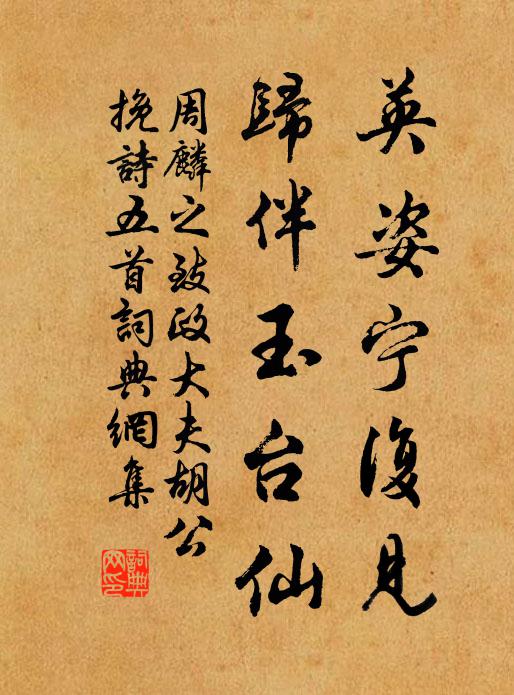 英姿宁復見
歸伴玉台仙
周麟之致政大夫胡公
挽詩五首詞典網集
詞典網印